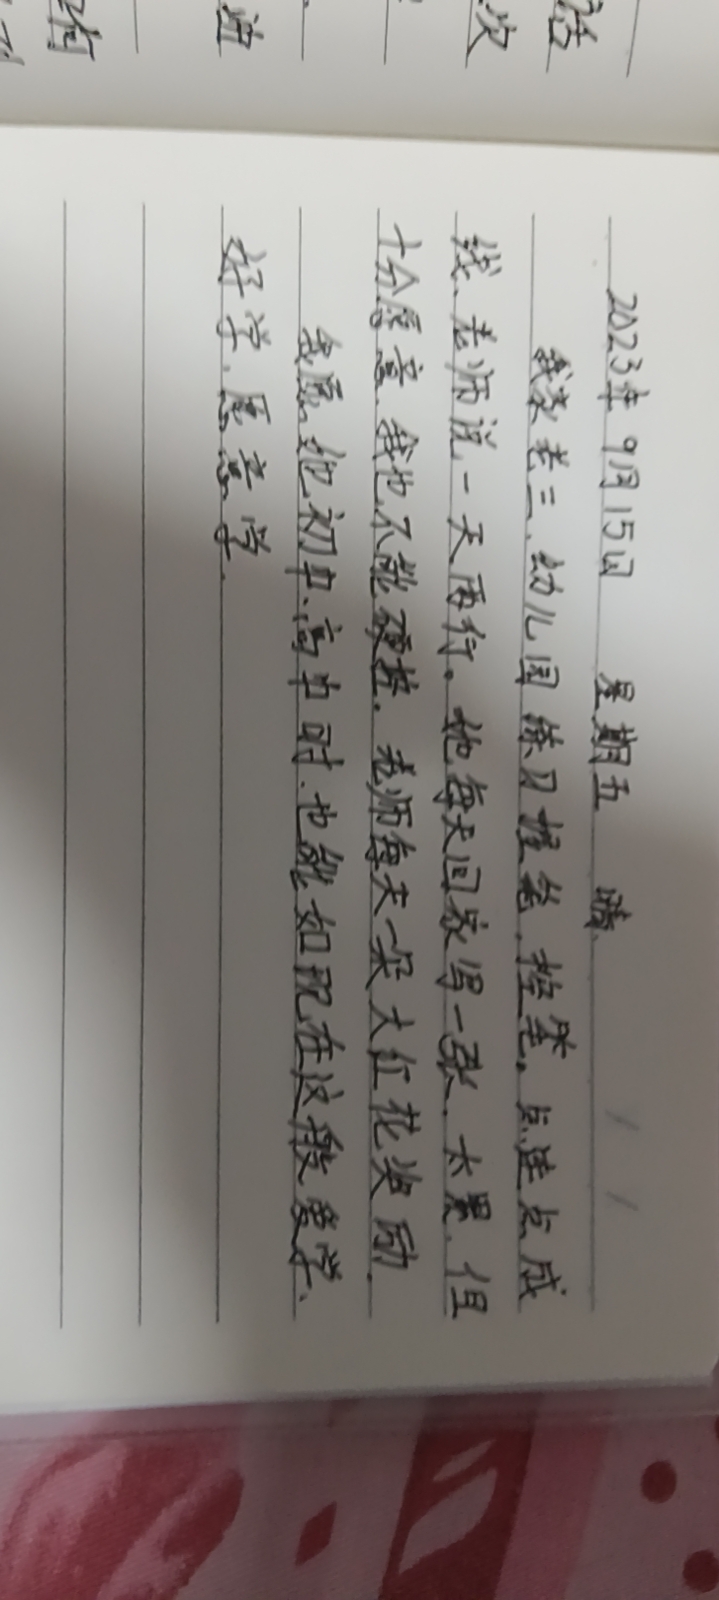 2023年9月15日 星期五 晴
我家老三、幼儿园练习握笔,控笔。点连点成
线、老师说一天两行。她每天回家写一张、太累、但
十分愿意、我也不能硬拦。老师每天一朵大红花奖励.
我愿她初中、高中时、也能如现在这般爱学、
好学、愿意学.
话
次